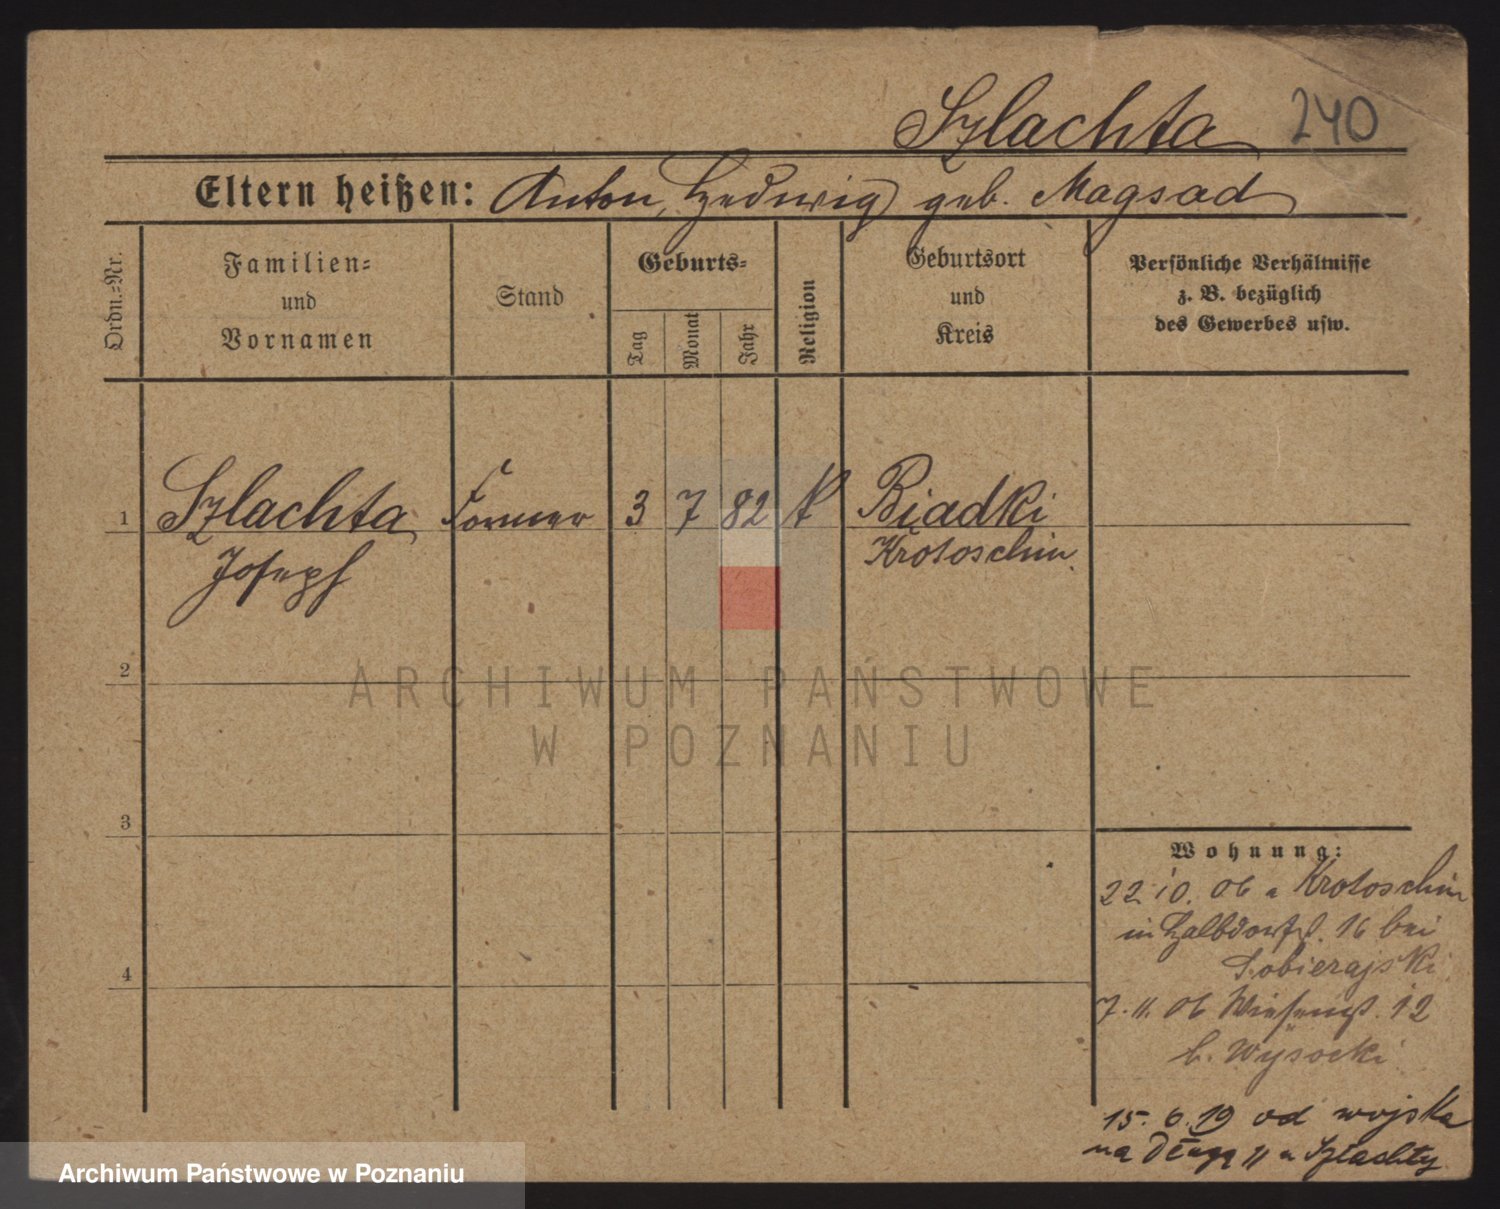 Szlachta 240
Eltern heißen: Anton, Hedwig geb. Magsad
Ordn.-Nr.
Familien-
und
Vornamen
Stand
Geburts-
Tag
Monat
Jahr
Religion
Geburtsort
und
Kreis
Persönliche Verhältnisse
z. B. bezüglich
des Gewerbes usw.
1 Szlachta Former 3 7 82 k Biadki
Joseph Krotoschin
2
ARCHIWUM PAŃSTWOWE
W POZNANIU
3
Wohnung:
22 10. 06 a Krotoschin
in Halbdorfst. 16 bei
Sobierajski
4
7. 11. 06 Wiesenst. 12
b. Wysocki
15. 6. 19 od wojska
na Długą 11 u Szlachty
Archiwum Państwowe w Poznaniu